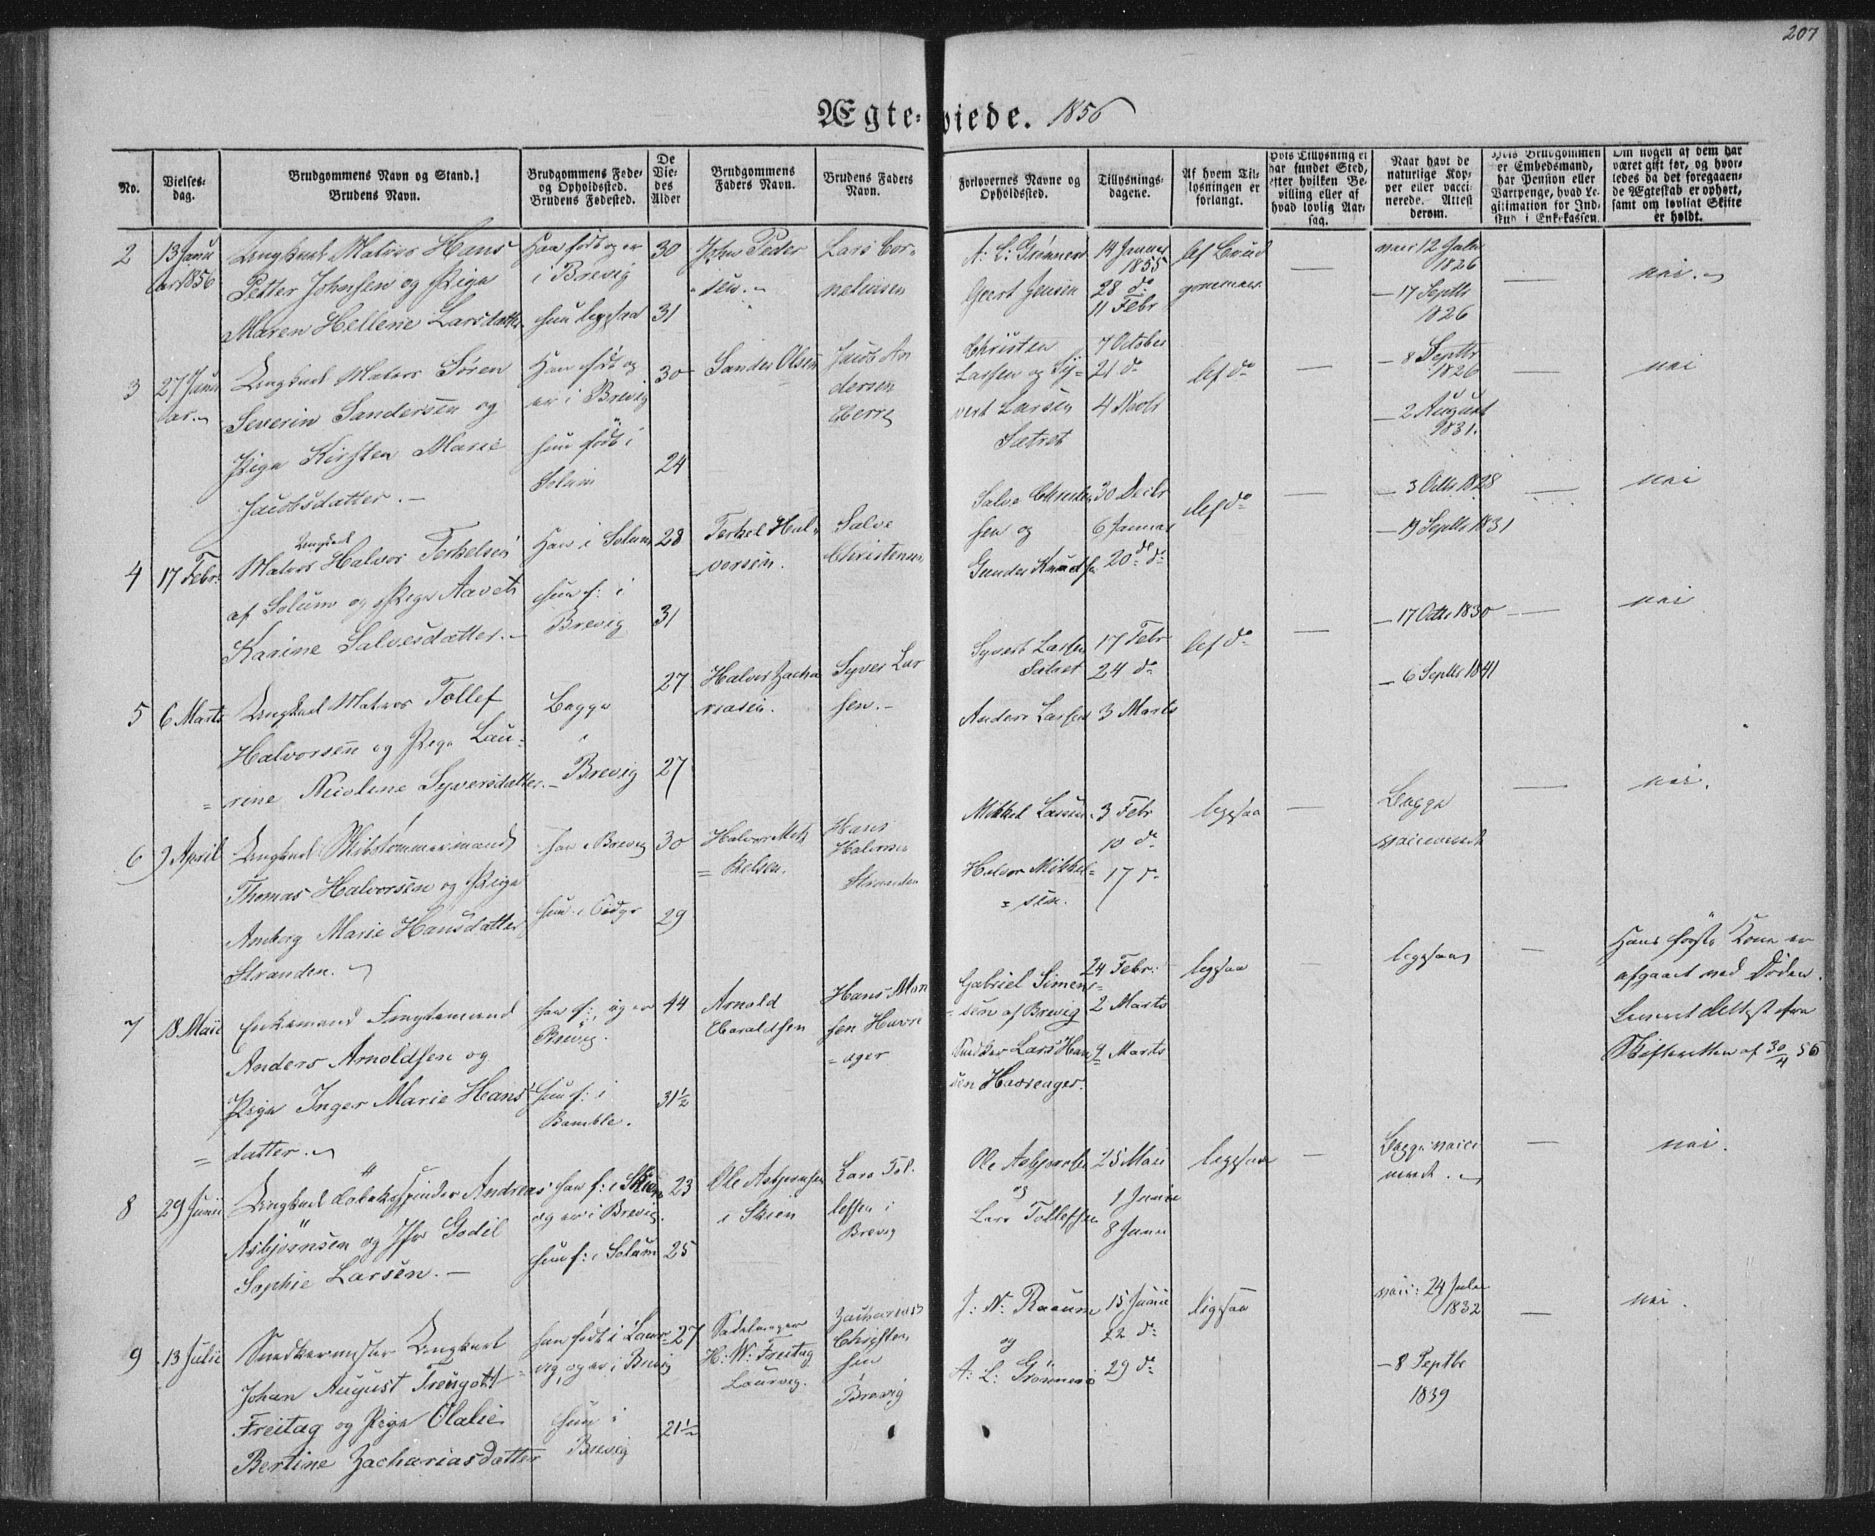 207
Ægte-viede. 1856
No.
Vielses-
dag.
Brudgommens Navn og Stand.
Brudens Navn.
Brudgommens Føde-
og Opholdssted.
Brudens Fødested.
De
Vie-
des
Alder
Brudgommens
Faders Navn.
Brudens Faders
Navn.
Forlovernes Navne og
Opholdssted.
Tillysnings-
dagene.
Af hvem Til-
lysningen er
forlangt.
Hvis Tillysning ei
har fundet Sted,
efter hvilken Be-
villing eller af
hvad lovlig Aar-
sag.
Naar havt de
naturlige Kop-
per eller vacci-
nerede. Attest
derom.
Hvis Brudgommen
er Embedsmand,
har Pension eller
Vartpenge, hvad Le-
gitimation for Ind-
skud i Enkekassen.
Om nogen af dem har
været gift før, og hvor-
ledes da det foregaaen-
de Ægteskab er ophørt,
samt om lovligt Skifte
er holdt.
2
13 Janu
ar 1856
Ungkarl Matros Hans
Petter Johnsen og Pige
Maren Hellene Larsdatter
Han født og er
i Brevig
hun ligesaa
30
31
John Peder
sen
Lars Cor-
neliusen
Geert Jensen
14 Januar
1855
28 do
11 Febr
af Brud
gommen
12 Julii
1826
17 Septbr
1826
nei
3
27 Janu
ar
Ungkarl Matros Søren
Severin Sandersen og
Pige Kirsten Marie
Jacobsdatter
Han født og
er i Brevig
hun født i
Solum
30
24
Sander Olsen
Jacob An
dersen
Herre
Christen
Larsen og Sy-
vert Larsen
Sætret
7 October
21 do
4 Novbr
af do
8 Septbr
1826
2 August
1831
nei
4
17 Febr
Ungkarl
Matros Halvor Terkelsen
af Solum og Pige Aavet
Karine Salvesdatter
Han i Solum
hun f: i
Brevig
28
31
Terkel Hal-
vorsen
Salve
Christensen
Salve Christen
sen og
Gunder Knudsen
30 Decbr
6 Januar
20de do
af do
3 Octbr 1828
19 Septbr 1831
nei
5
6 Marts
Ungkarl Matros Tollef
Halvorsen og Pige Lau-
rine Nicoline Syversdatter
Begge
i
Brevig
27
27
Halvor Zacha
riasen
Syver Lar
sen
Syvert Larsen
Sætret
Anders Larsen
17 Febr
24 do
3 Marts
af do
17 Octbr 1830
6 Septbr 1841
nei
6
9 April
Ungkarl Skibstømmermand
Thomas Halvorsen og Pige
Amborg Marie Hansdatter
Stranden
han i Brevig
hun i
30
29
Halvor Mik
kelsen
Hans
Halvorsen
Stranden
Mikkel Larsen
Halvor Mikkel-
sen
3 Febr
10 do
17 do
ligesaa
Begge
vaccinerede
nei
7
18 Maii
Enkemand Fragtemand
Anders Arnoldsen og
Pige Inger Marie Hans
datter
han f: og er
Brevig
hun f: i
Bamble
44
31½
Arnold
Haraldsen
Hans Mon
sen Havre
ager
Gabriel Simen-
sen af Brevig
Snedker Lars Han
sen Havreager
24 Febr
2 Marts
9 Marts
ligesaa
ligesaa
Hans første Kone er
afgaaet ved Døden
Leveret Attest fra
Skifteretten af 30/4 56
8
29 Junii
Andreas
Asbjørnsen og Jfr Godil
Sophie Larsen
han f: i Skien
og er i Brevig
hun f: i Solum
23
25
Ole Asbjørnsen
i Skien
Lars Tol
lefsen i
Brevig
Ole Asbjørnsen
og
Lars Tollefsen
25 Maii
1 Junii
8 Junii
ligesaa
Begge vacci
nerede
nei
9
13 Julii
Snedkermester Ungkarl
Johan August Treugott
Freitag og Pige Olalie
Bertine Zachariasdatter
han født i Laur-
vig, og er i Brevig
hun i
Brevig
27
21½
Sadelmager
H: W: Freitag
Laurvig
Zacharias
Christen
sen
Brevig
J: N: Raaum
og
15 Junii
22 do
29 do
ligesaa
vacc: 24 Julii
1832
8 Septbr
1839
nei